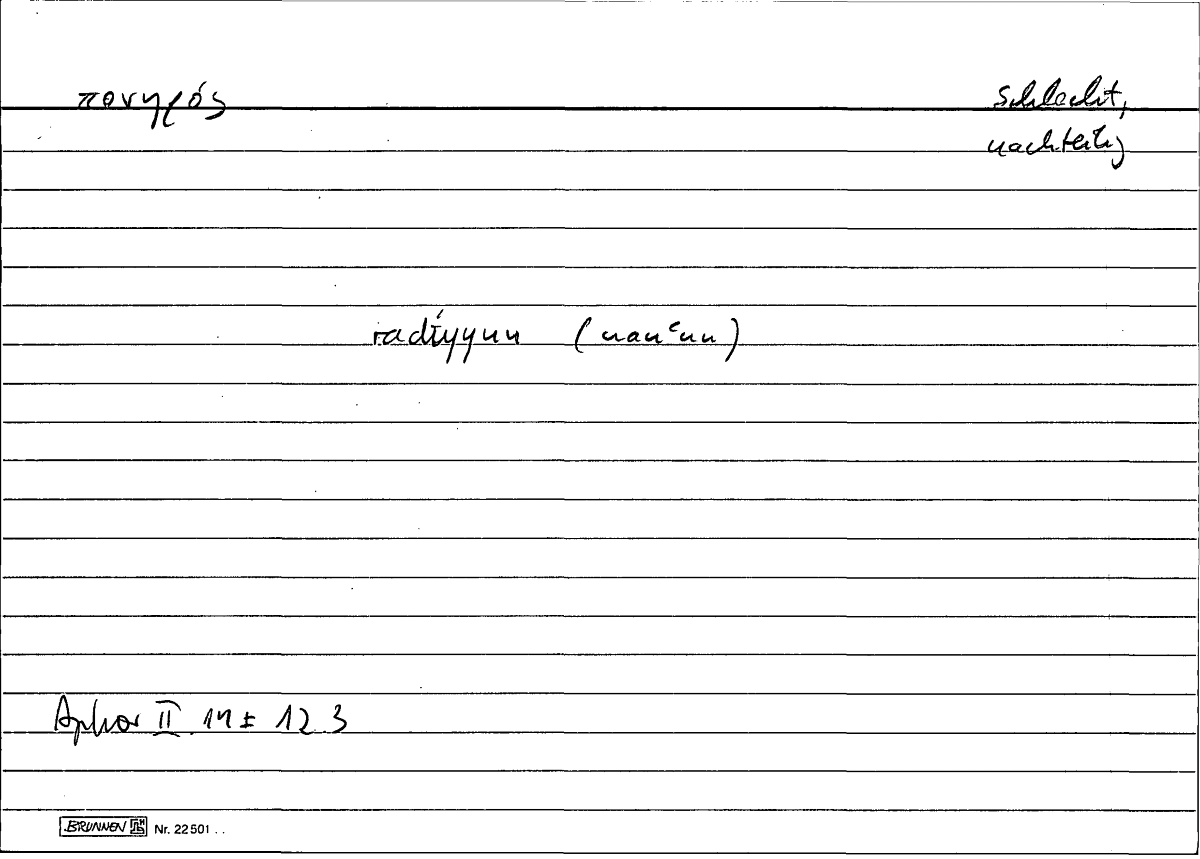 πονηρός schlecht,
nachteilig
radīyun (nauʿun)
Aphor II 12 3
BRUNNEN Nr. 22501